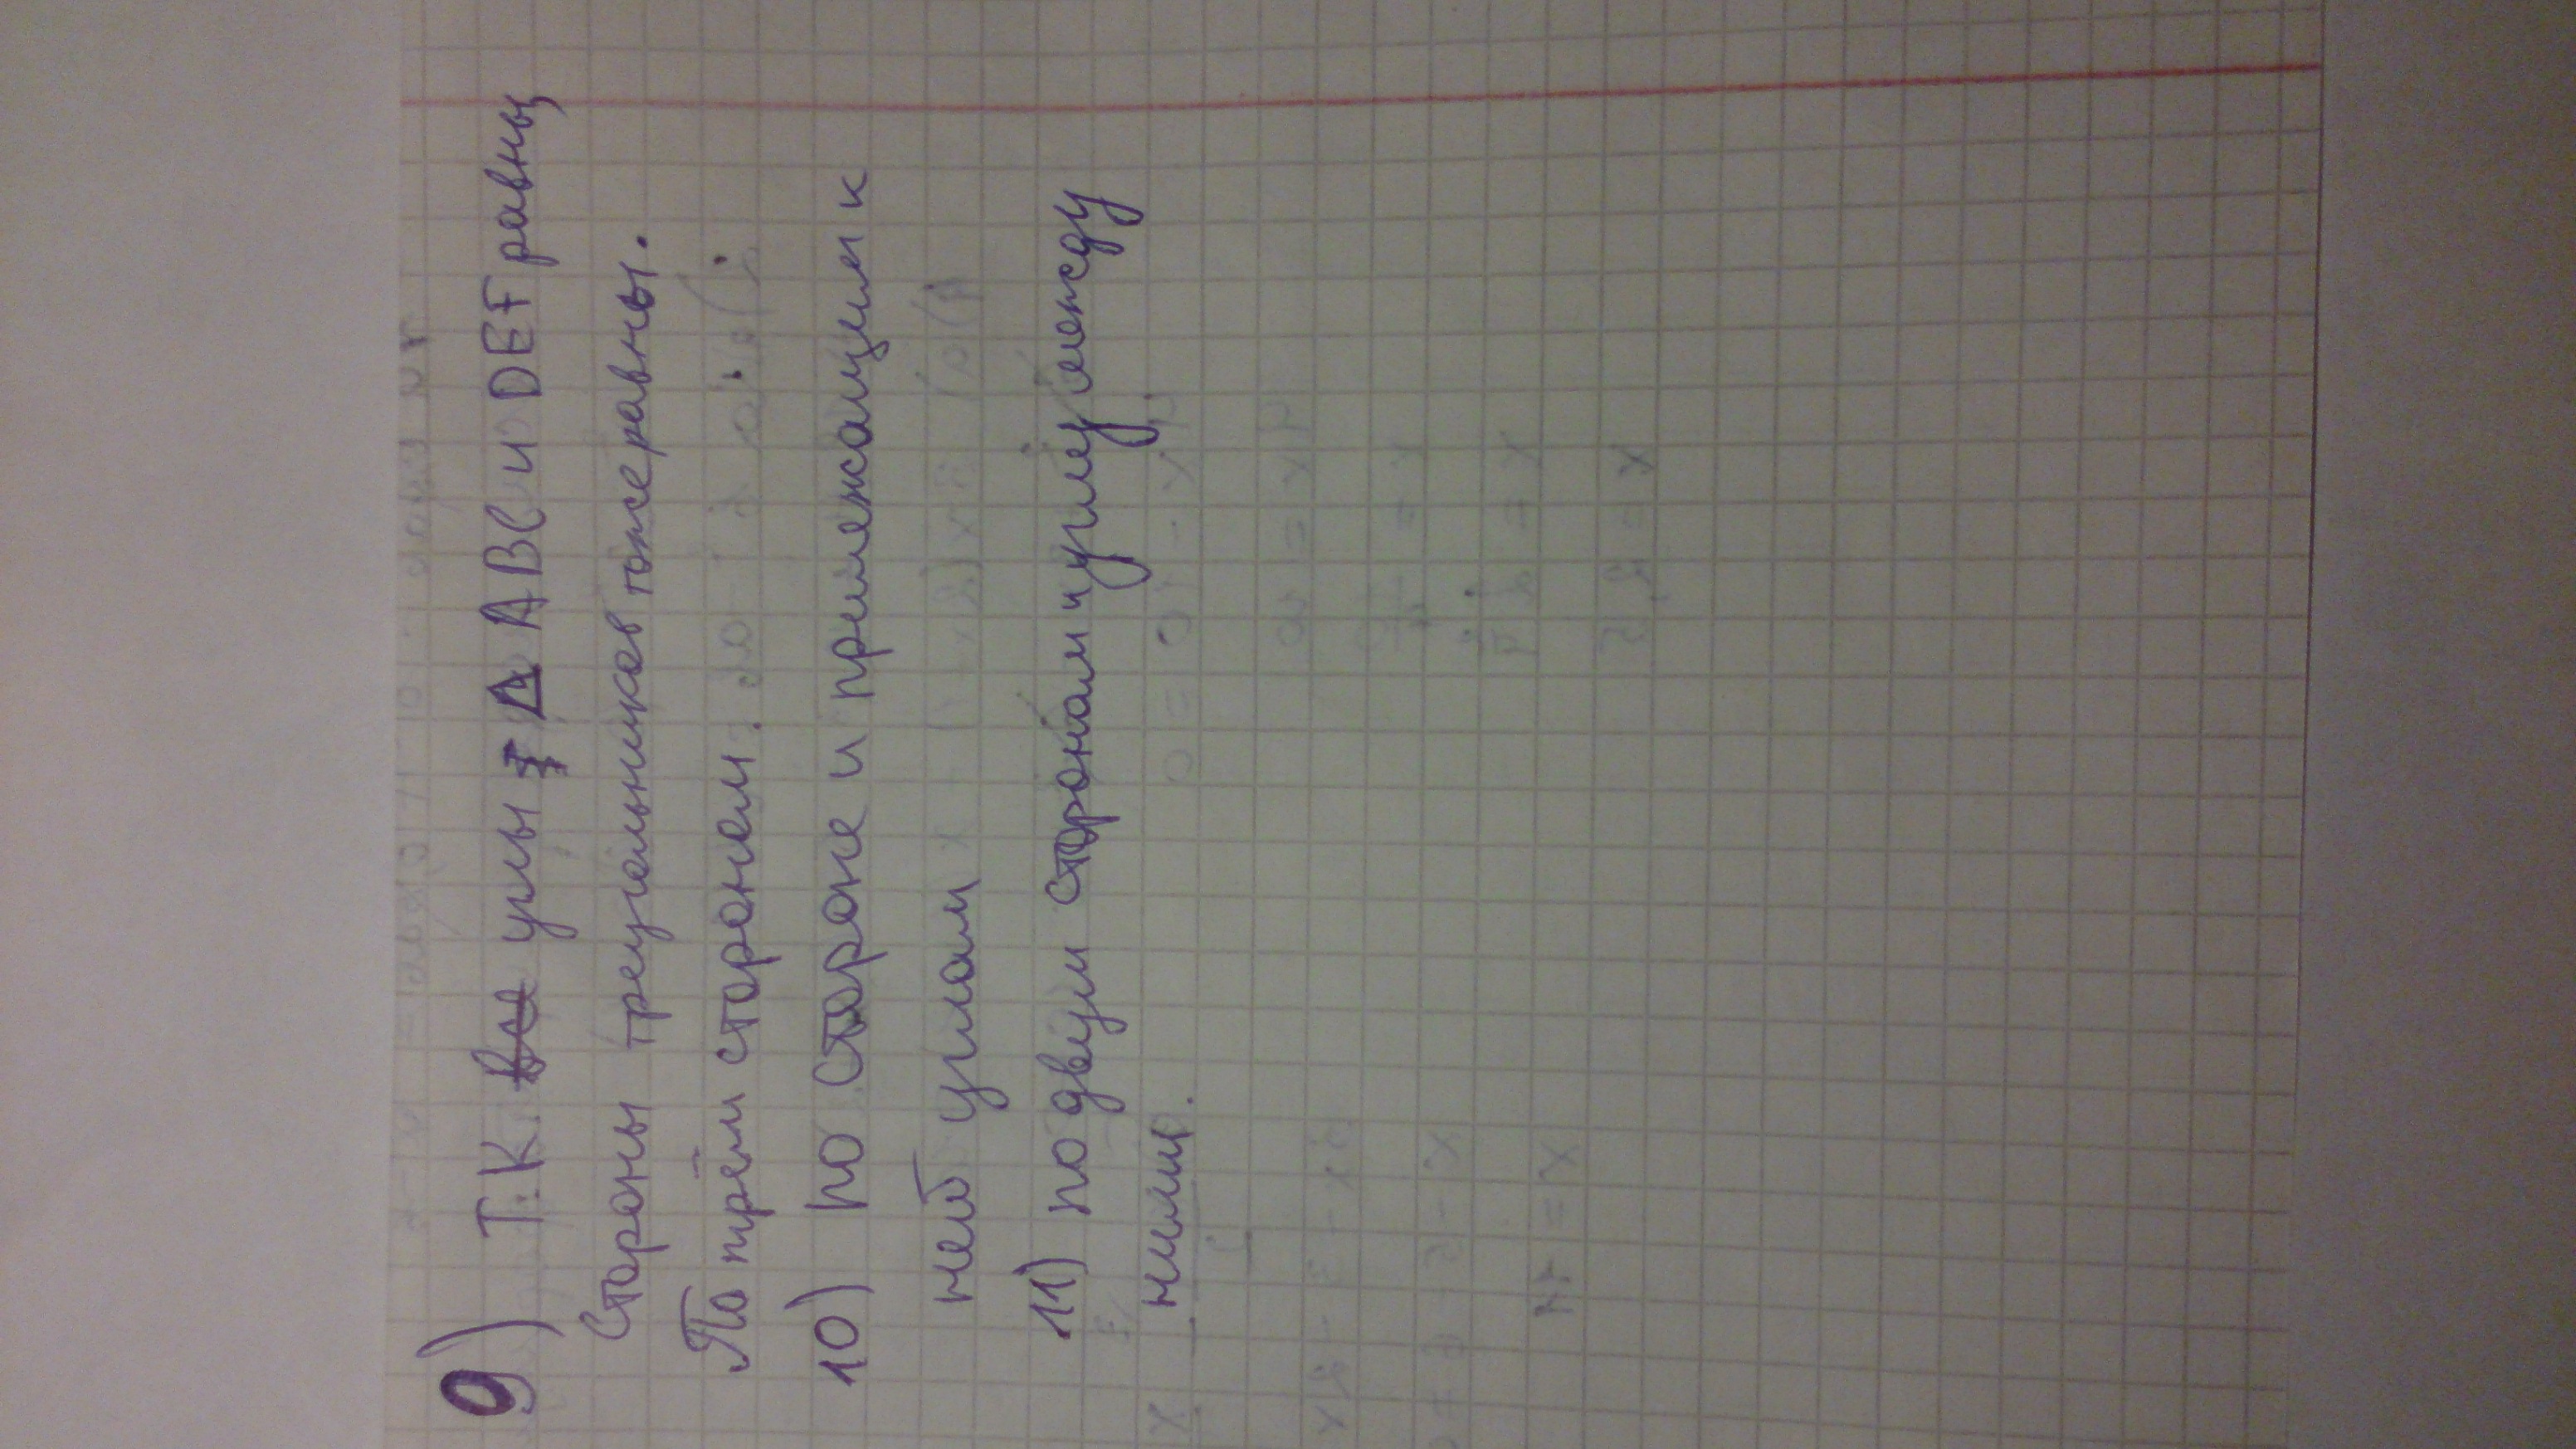 9) Т.К. углы Δ ABC и DEF равны
Стороны треугольников тоже равны.
По трём сторонам.
10) по стороне и прилежащим к
ней углам
11) по двум сторонам и углу между
ними.